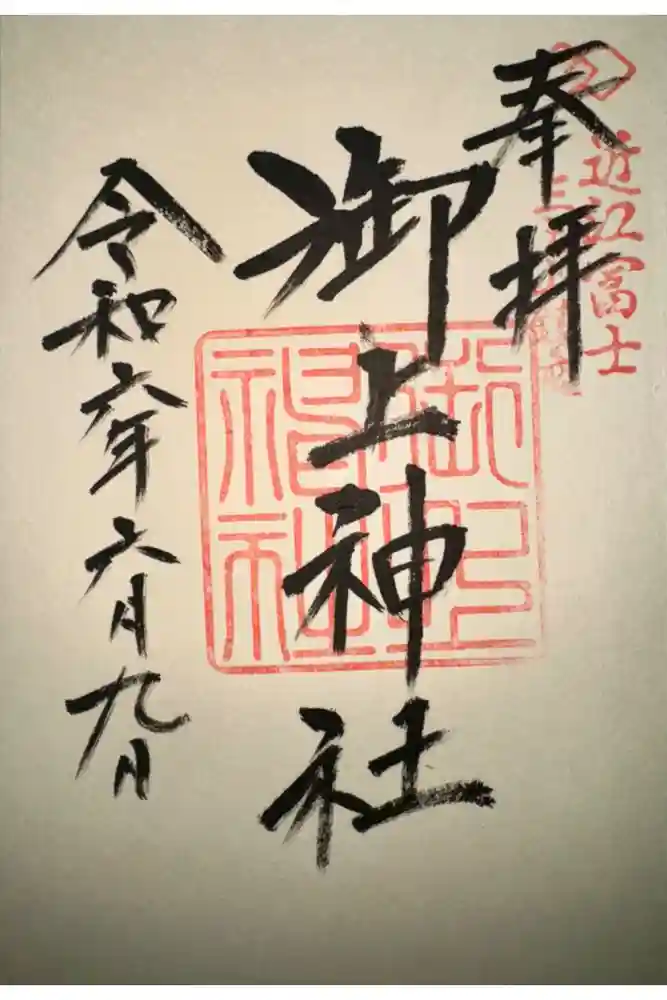 近江富士
奉拝
御上神社
御上神社
令和六年六月九日